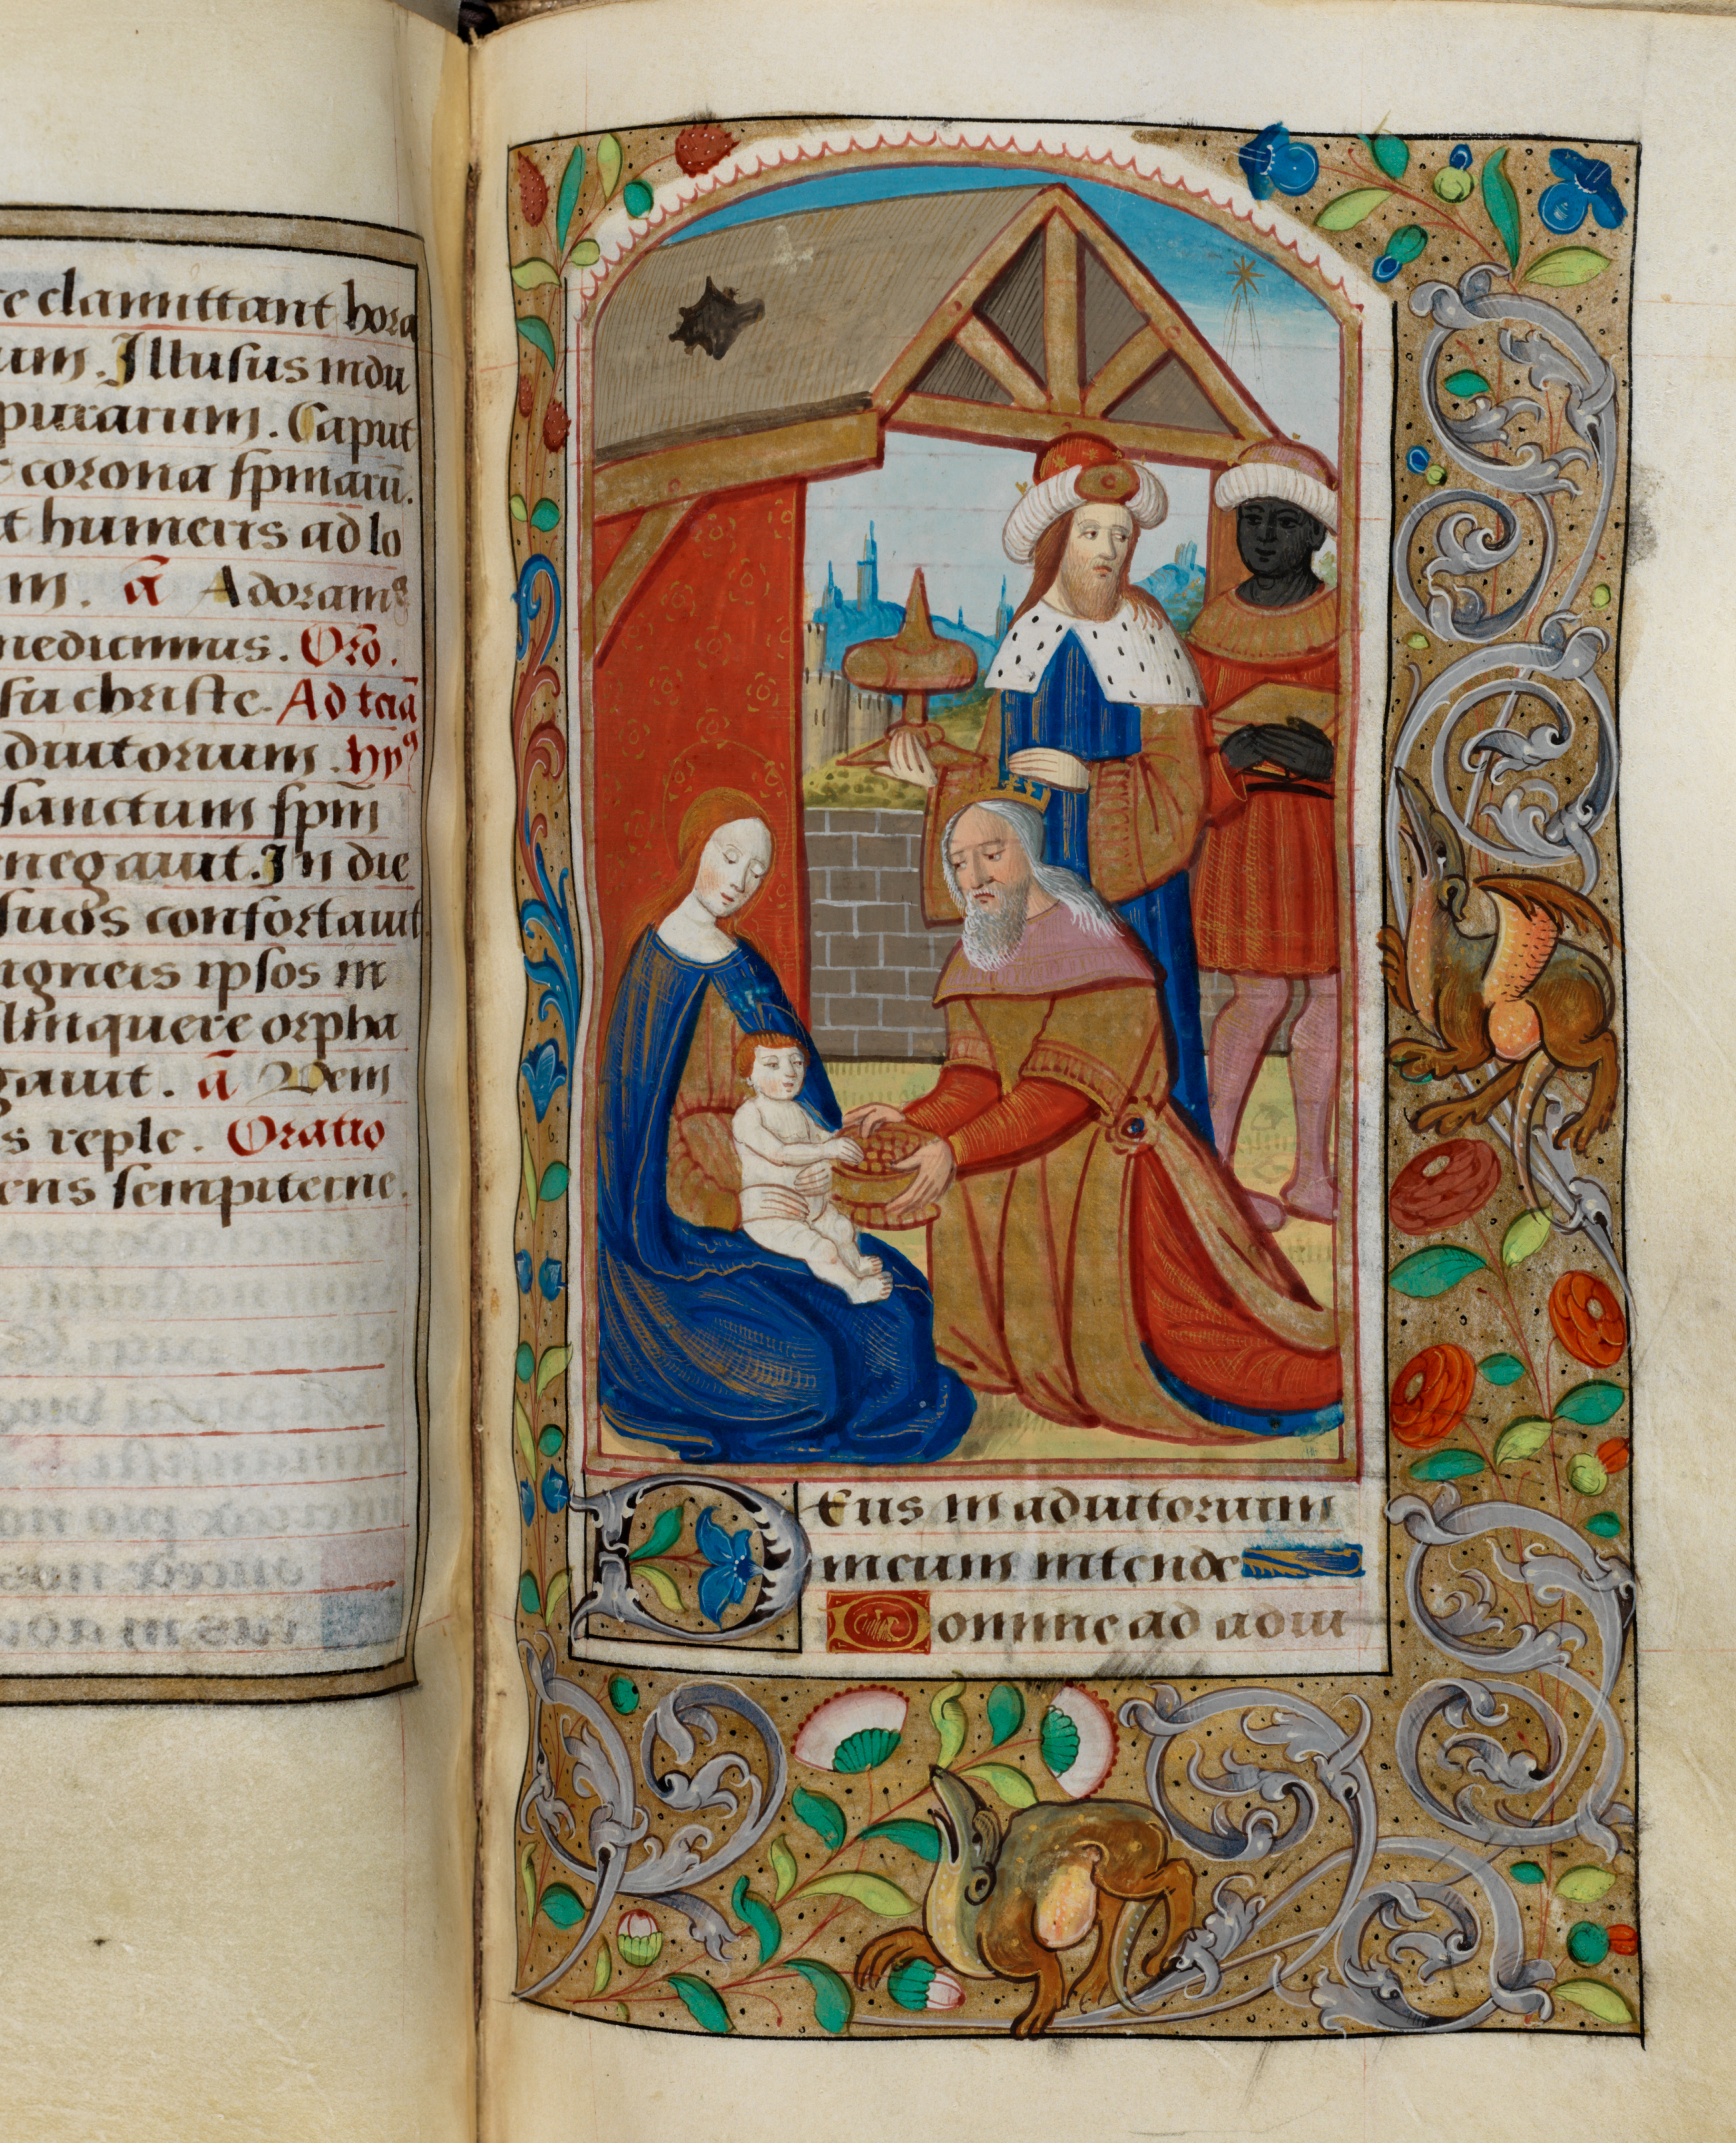 clamittant hora
um. Illusus indu
purarum. Caput
corona spinarū.
humeris ad lo
m. ā Adoramꝰ
nedicimus. Oro.
su christe. Ad terā
diutorium. hyꝰ
sanctum spm
negauit. In die
suos confortauit.
igneis ipsos in
linquere orpha
gauit. ā Veni
s reple. Oratio
ens sempiterne.
Deus in adiutorium
meum intende
Domine ad adiu